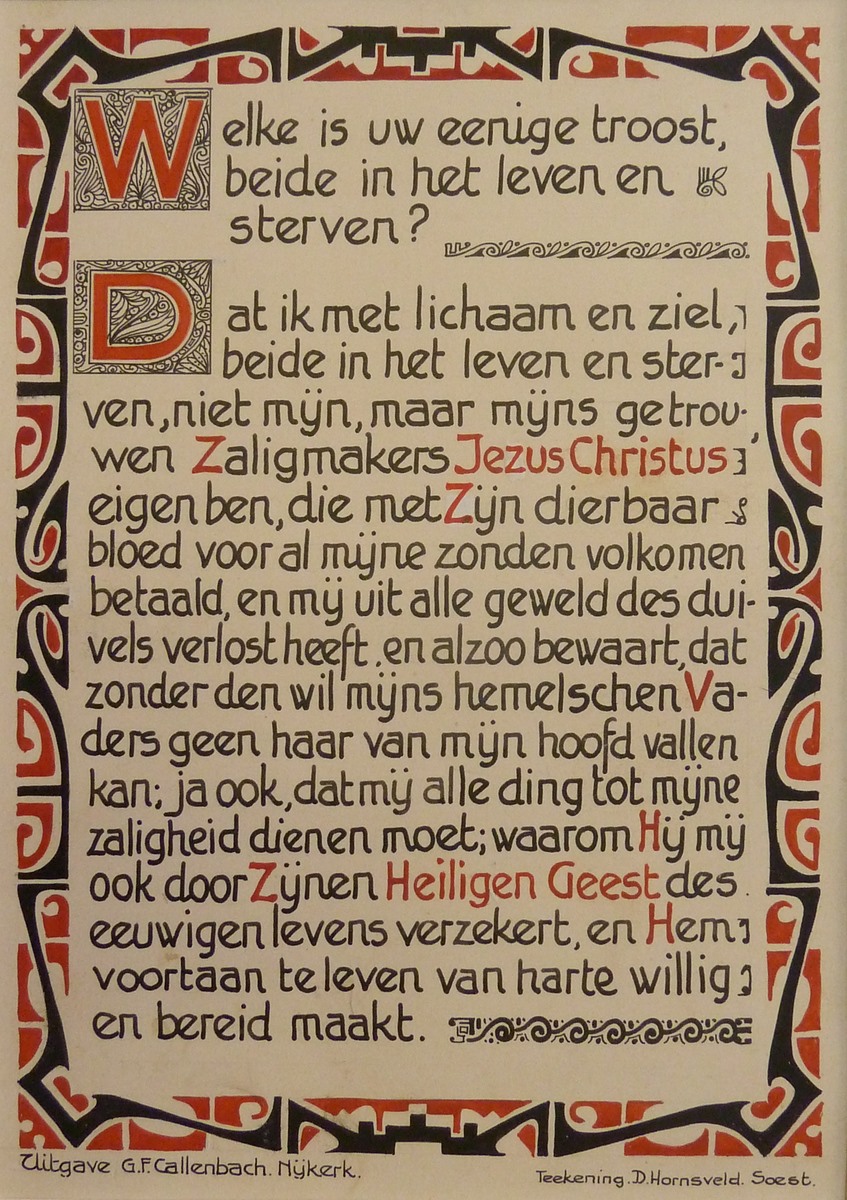 Welke is uw eenige troost,
beide in het leven en
sterven?
Dat ik met lichaam en ziel,
beide in het leven en ster-
ven, niet mijn, maar mijns getrou-
wen Zaligmakers Jezus Christus
eigen ben, die met Zijn dierbaar
bloed voor al mijne zonden volkomen
betaald, en mij uit alle geweld des dui-
vels verlost heeft, en alzoo bewaart, dat
zonder den wil mijns hemelschen Va-
ders geen haar van mijn hoofd vallen
kan; ja ook, dat mij alle ding tot mijne
zaligheid dienen moet; waarom Hij mij
ook door Zijnen Heiligen Geest des
eeuwigen levens verzekert, en Hem
voortaan te leven van harte willig
en bereid maakt.
Uitgave G.F. Callenbach. Nijkerk.
Teekening. D. Hornsveld. Soest.